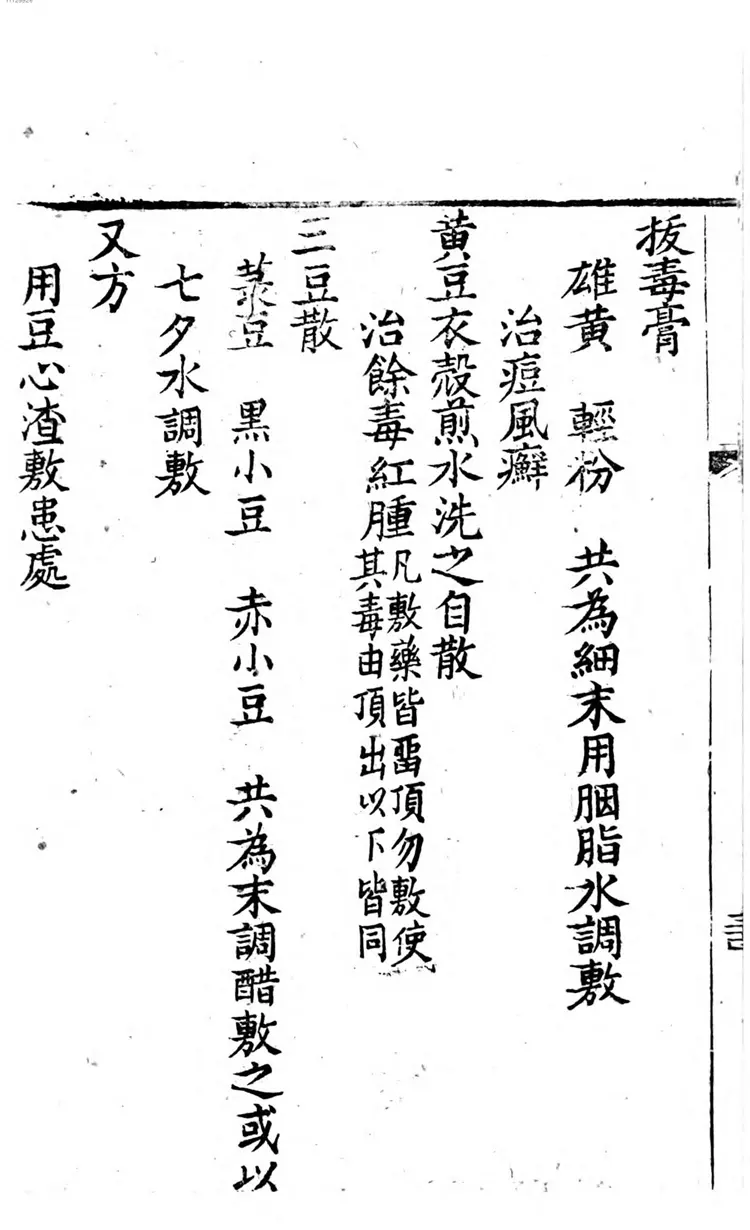 拔毒膏
雄黃　輕粉　共為細末用胭脂水調敷
治痘風癬
黃豆衣殼煎水洗之自散
治餘毒紅腫凡敷藥皆畱頂勿敷使
其毒由頂出以下皆同
三豆散
菉豆　黑小豆　赤小豆　共為末調醋敷之或以
七夕水調敷
又方
用豆心渣敷患處